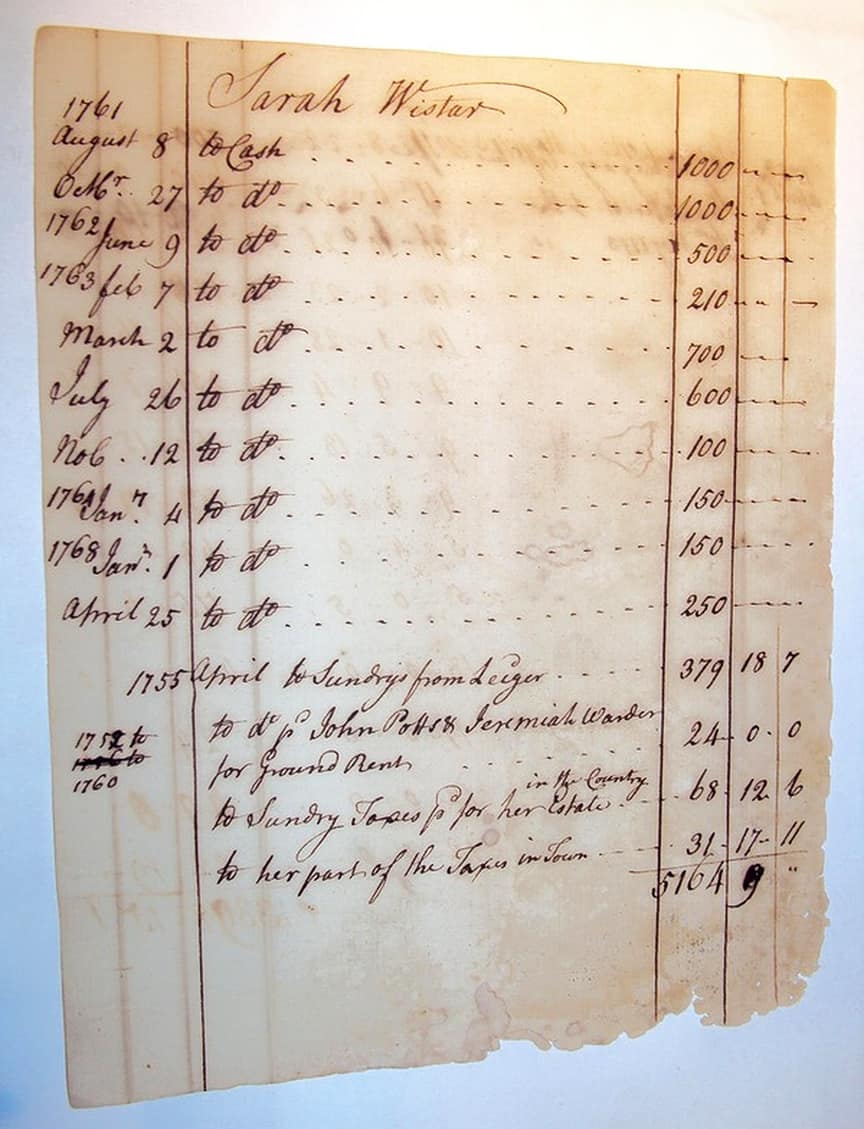 Sarah Wistar
1761
August 8 to Cash 1000
Octbr. 27 to do 1000
1762 June 9 to do 500
1763 feb 7 to do 210
March 2 to do 700
July 26 to do 600
Nob 12 to do 100
1764 Jany. 4 to do 150
1768 Jany. 1 to do 150
April 25 to do 250
1755 April to Sundrys from Leidger 379 18 7
to do pd John Potts & Jeremiah Warder
1752 to
for Ground Rent 24 0 0
1756 to
1760
in the Country
to Sundry Taxes pd for her Estate 68 12 6
to her part of the Taxes in Town 31 17 11
5164 9 "